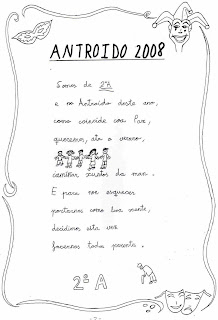 ANTROIDO 2008
Somos de 2ºA
e no Antroido deste ano,
como coincide coa Paz,
queremos, ata o verano,
camiñar xuntos da man.
E para non esquecer
portarnos como boa xente,
decidimos esta vez
facernos todos parente.
2º A